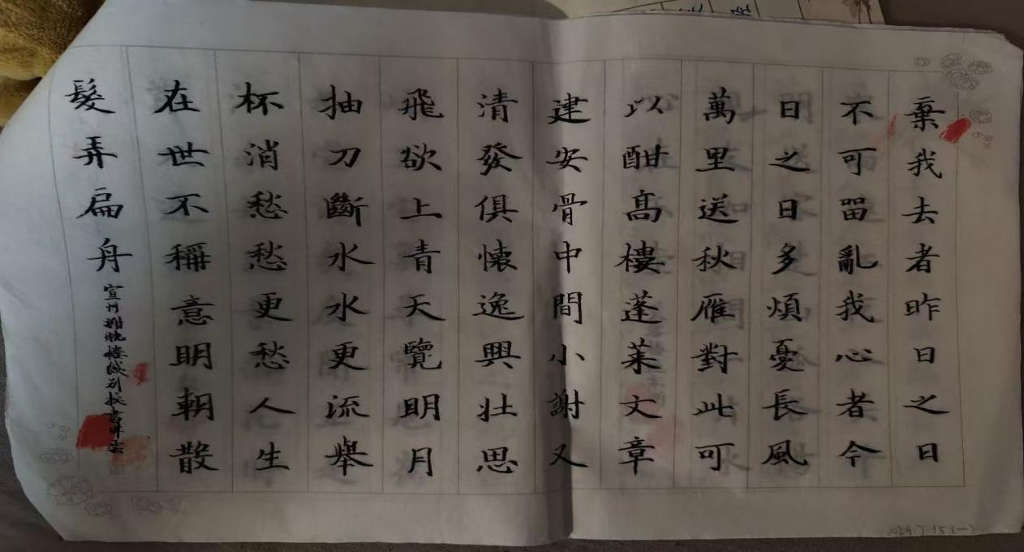 棄我去者昨日之日
不可留亂我心者今
日之日多煩憂長風
萬里送秋雁對此可
以酣高樓蓬萊文章
建安骨中間小謝又
清發俱懷逸興壯思
飛欲上青天覽明月
抽刀斷水水更流舉
杯消愁愁更愁人生
在世不稱意明朝散
髮弄扁舟
宣州謝朓樓餞別校書叔雲